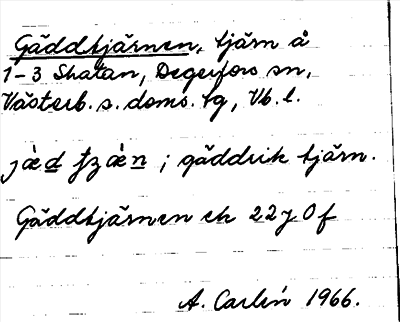 Gäddtjärnen, tjärn å
1-3 Skatan, Degerfors sn,
Västerb. s. doms. lg, Vb. l.
gäddrik tjärn.
Gäddtjärnen ek 22J0f
A. Carlén 1966.